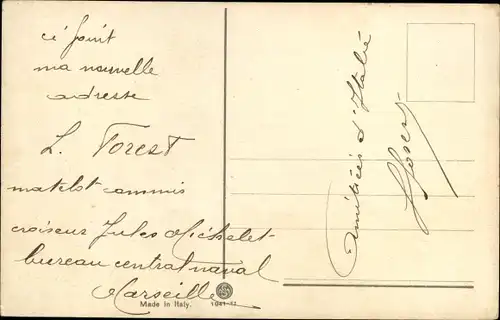 ci joint
ma nouvelle
adresse
L. Forest
matelot commis
croiseur Jules Michelet
bureau central naval
Marseille
Made in Italy.
1041-12
Amitiés d'Italie